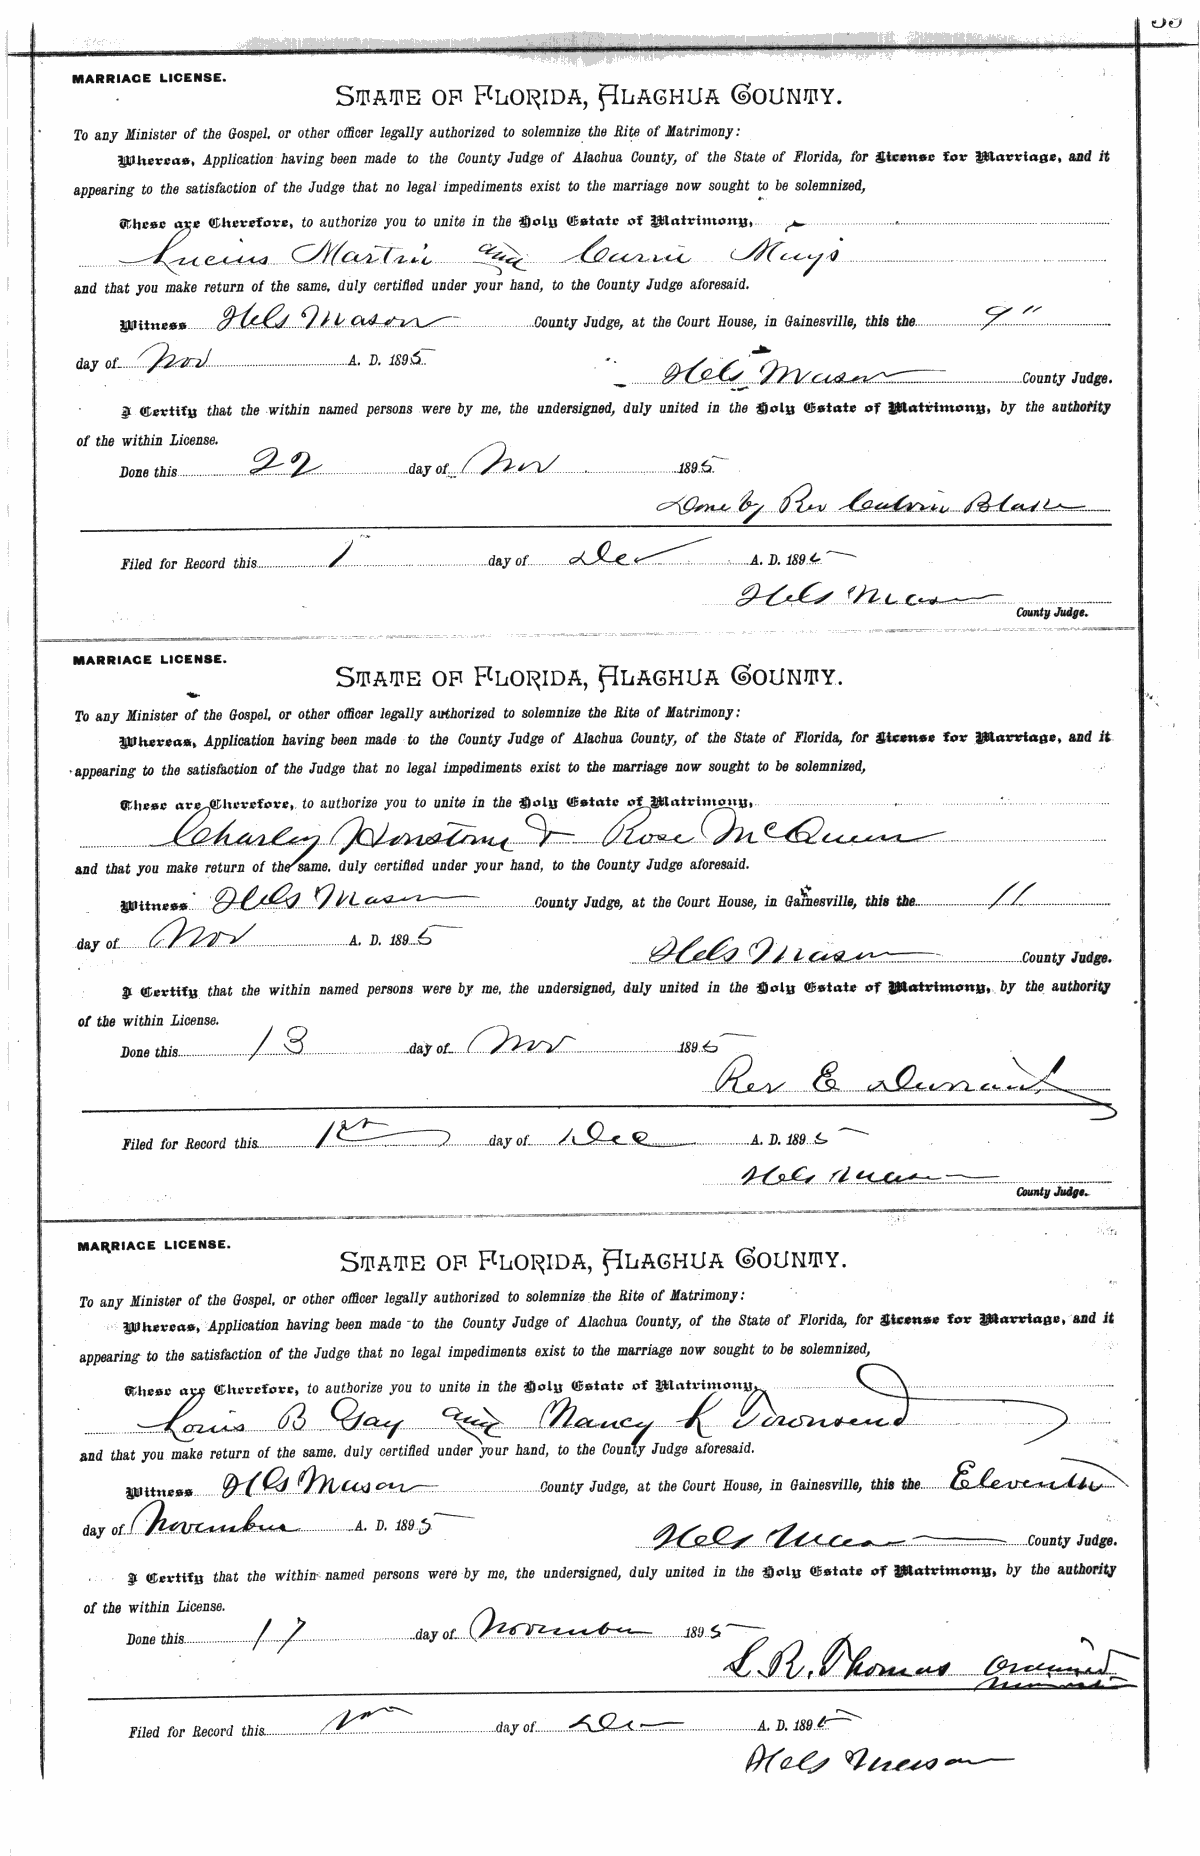 MARRIAGE LICENSE.
STATE OF FLORIDA, ALACHUA COUNTY.
To any Minister of the Gospel, or other officer legally authorized to solemnize the Rite of Matrimony:
Whereas, Application having been made to the County Judge of Alachua County, of the State of Florida, for License for Marriage, and it
appearing to the satisfaction of the Judge that no legal impediments exist to the marriage now sought to be solemnized,
These are Therefore, to authorize you to unite in the Holy Estate of Matrimony,
Lucius Martin and Carrie Mays
and that you make return of the same, duly certified under your hand, to the County Judge aforesaid.
Witness Mason County Judge, at the Court House, in Gainesville, this the 9"
day of Nov A. D. 1895
Mason County Judge.
I Certify that the within named persons were by me, the undersigned, duly united in the Holy Estate of Matrimony, by the authority
of the within License.
Done this 22 day of Nov 1895
Done by Rev Calvin Blake
Filed for Record this 1 day of Dec A. D. 1895
Mason
County Judge.
MARRIAGE LICENSE.
STATE OF FLORIDA, ALACHUA COUNTY.
To any Minister of the Gospel, or other officer legally authorized to solemnize the Rite of Matrimony:
Whereas, Application having been made to the County Judge of Alachua County, of the State of Florida, for License for Marriage, and it
appearing to the satisfaction of the Judge that no legal impediments exist to the marriage now sought to be solemnized,
These are Therefore, to authorize you to unite in the Holy Estate of Matrimony,
Charley & Rose McQueen
and that you make return of the same, duly certified under your hand, to the County Judge aforesaid.
Witness Mason County Judge, at the Court House, in Gainesville, this the 11
day of Nov A. D. 1895
Mason County Judge.
I Certify that the within named persons were by me, the undersigned, duly united in the Holy Estate of Matrimony, by the authority
of the within License.
Done this 13 day of Nov 1895
Rev E Durrant
Filed for Record this 1st day of Dec A. D. 1895
Mason
County Judge.
MARRIAGE LICENSE.
STATE OF FLORIDA, ALACHUA COUNTY.
To any Minister of the Gospel, or other officer legally authorized to solemnize the Rite of Matrimony:
Whereas, Application having been made to the County Judge of Alachua County, of the State of Florida, for License for Marriage, and it
appearing to the satisfaction of the Judge that no legal impediments exist to the marriage now sought to be solemnized,
These are Therefore, to authorize you to unite in the Holy Estate of Matrimony,
Louis B Gay and Nancy L Townsend
and that you make return of the same, duly certified under your hand, to the County Judge aforesaid.
Witness Mason County Judge, at the Court House, in Gainesville, this the Eleventh
day of November A. D. 1895
Mason County Judge.
I Certify that the within named persons were by me, the undersigned, duly united in the Holy Estate of Matrimony, by the authority
of the within License.
Done this 17 day of November 1895
S. R. Thomas Ordained
Minister
Filed for Record this day of Dec A. D. 1895
Mason